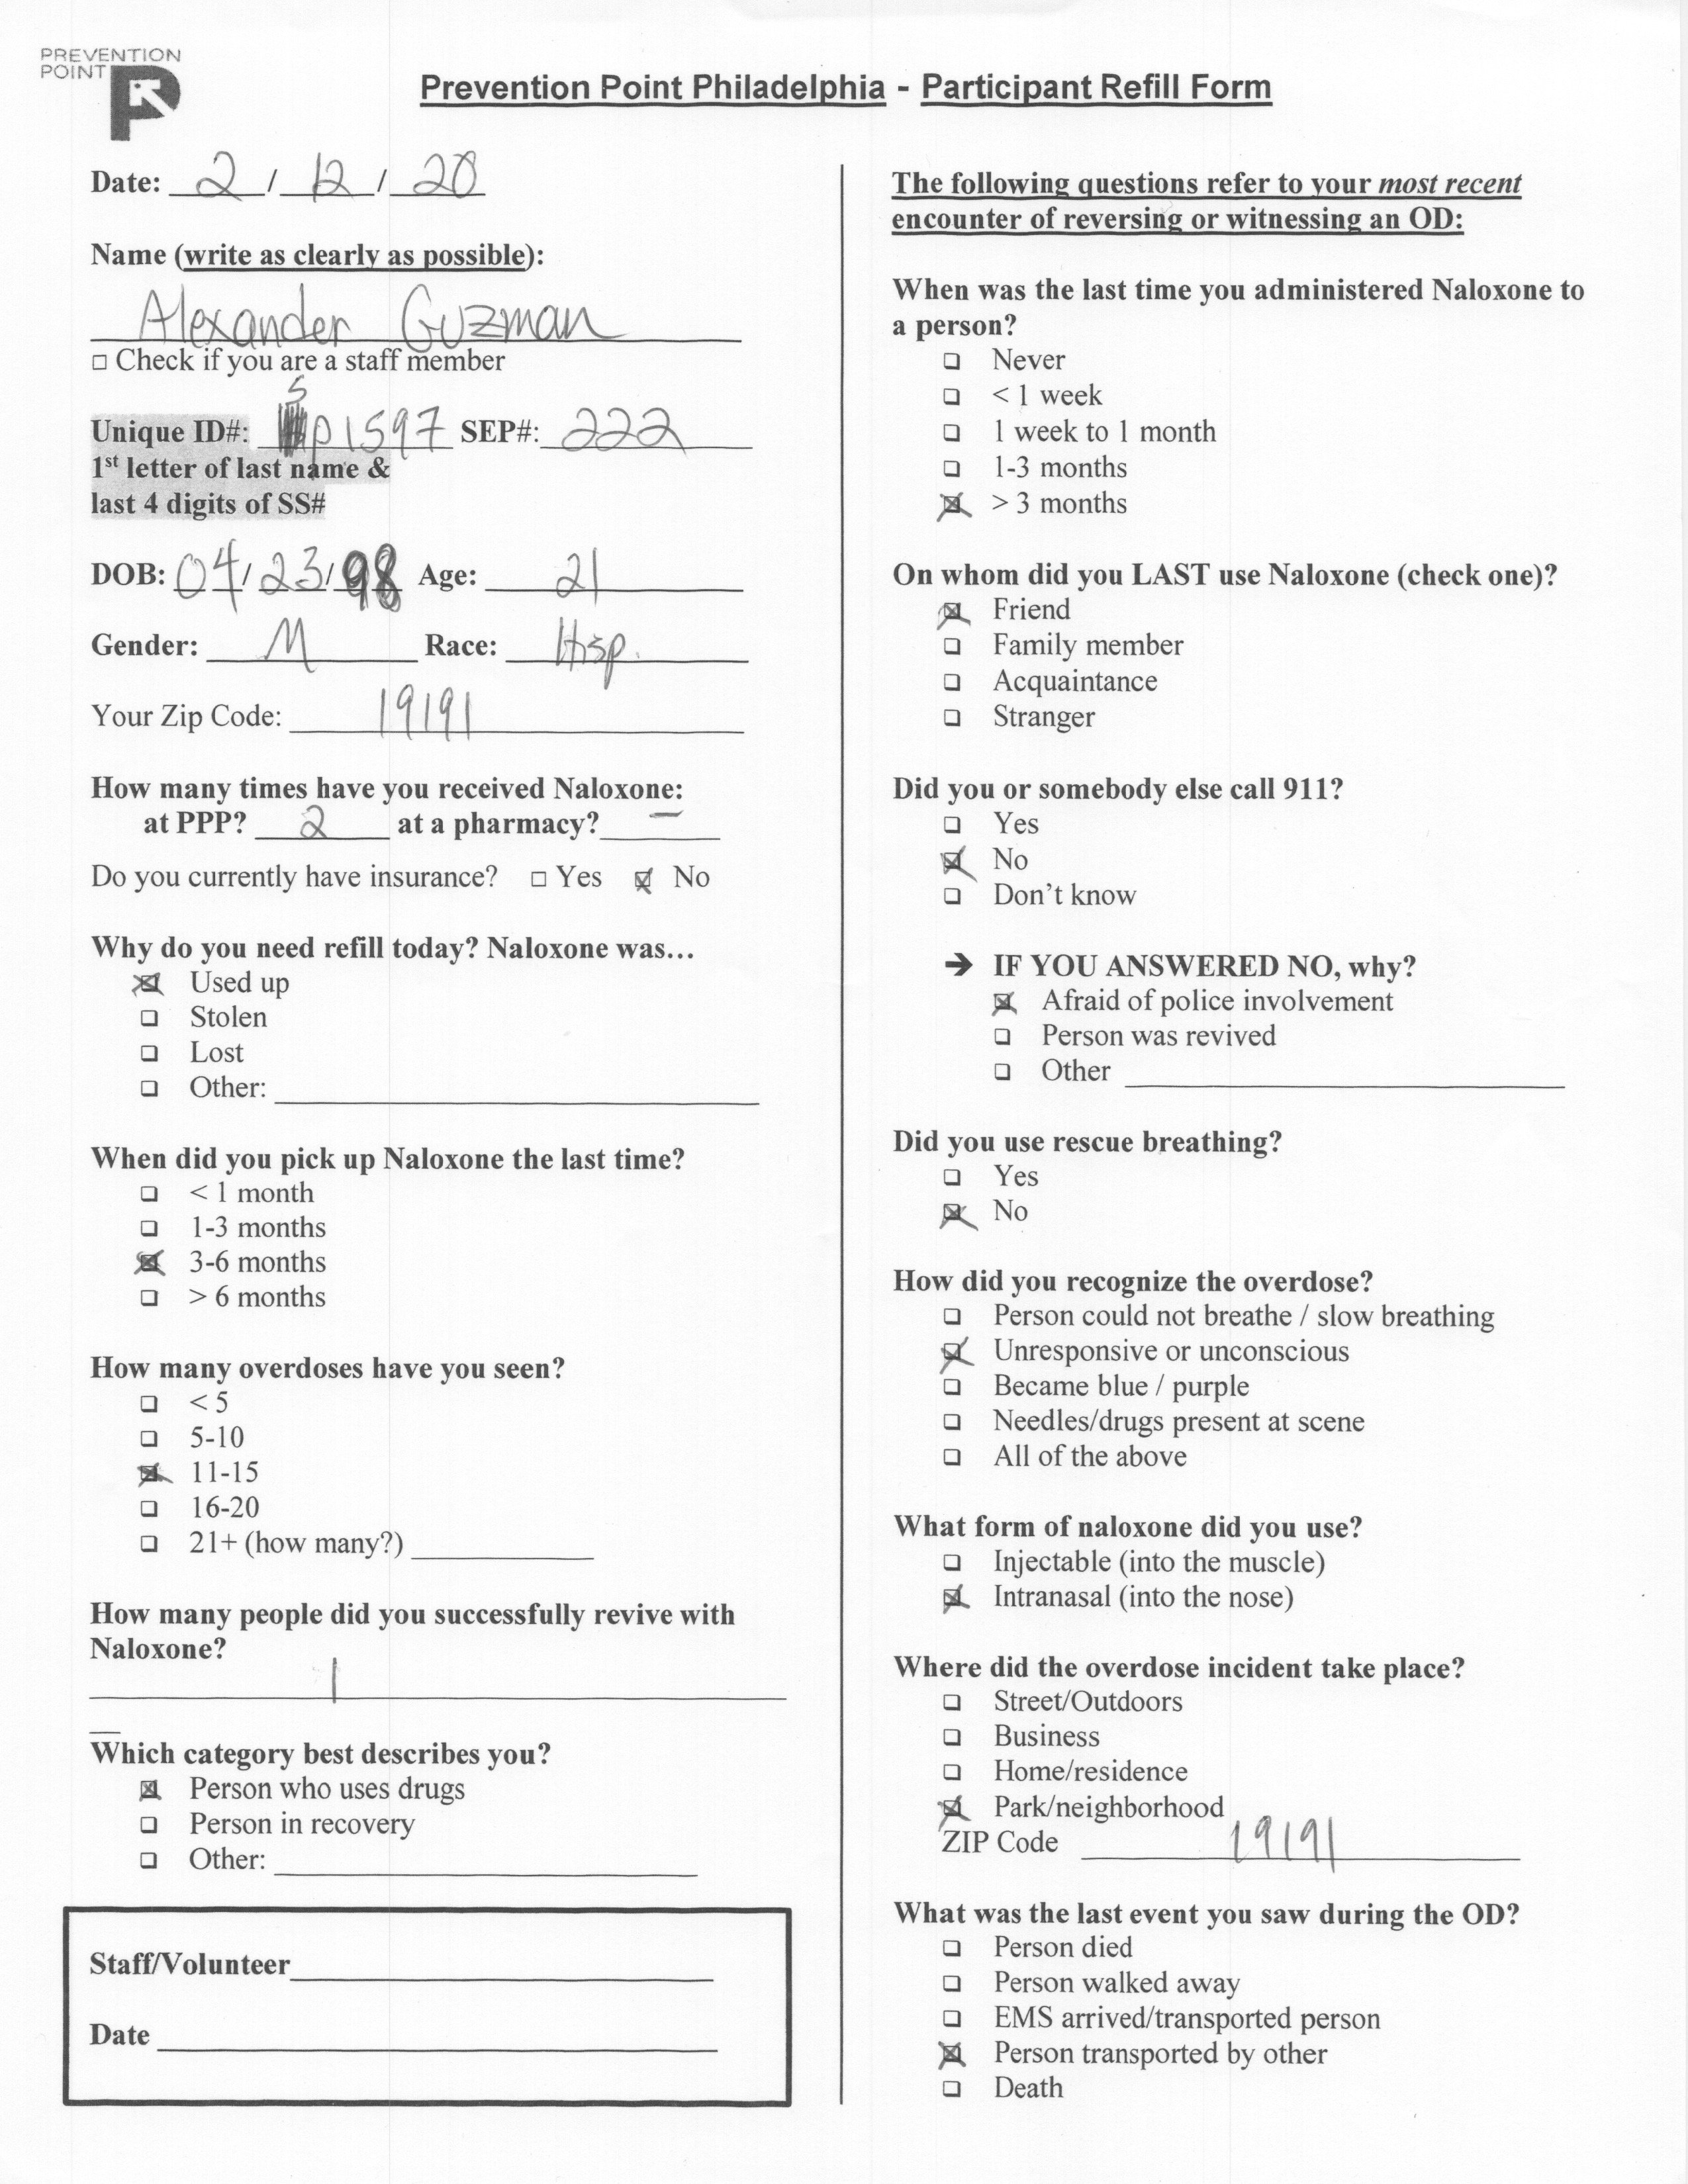 PREVENTION
POINT
Prevention Point Philadelphia - Participant Refill Form
Date: 2 / 12 / 20
Name (write as clearly as possible):
Alexander Guzman
□ Check if you are a staff member
S
Unique ID#: p1597 SEP#: 222
1st letter of last name &
last 4 digits of SS#
DOB: 04/23/98 Age: 21
Gender: M Race: Hisp.
Your Zip Code: 19191
How many times have you received Naloxone:
at PPP? 2 at a pharmacy? —
Do you currently have insurance? □ Yes ☒ No
Why do you need refill today? Naloxone was...
☒ Used up
❑ Stolen
❑ Lost
❑ Other:
When did you pick up Naloxone the last time?
❑ < 1 month
❑ 1-3 months
☒ 3-6 months
❑ > 6 months
How many overdoses have you seen?
❑ < 5
❑ 5-10
☒ 11-15
❑ 16-20
❑ 21+ (how many?)
How many people did you successfully revive with
Naloxone?
1
Which category best describes you?
☒ Person who uses drugs
❑ Person in recovery
❑ Other:
Staff/Volunteer
Date
The following questions refer to your most recent
encounter of reversing or witnessing an OD:
When was the last time you administered Naloxone to
a person?
❑ Never
❑ < 1 week
❑ 1 week to 1 month
❑ 1-3 months
☒ > 3 months
On whom did you LAST use Naloxone (check one)?
☒ Friend
❑ Family member
❑ Acquaintance
❑ Stranger
Did you or somebody else call 911?
❑ Yes
☒ No
❑ Don't know
➔ IF YOU ANSWERED NO, why?
☒ Afraid of police involvement
❑ Person was revived
❑ Other
Did you use rescue breathing?
❑ Yes
☒ No
How did you recognize the overdose?
❑ Person could not breathe / slow breathing
☒ Unresponsive or unconscious
❑ Became blue / purple
❑ Needles/drugs present at scene
❑ All of the above
What form of naloxone did you use?
❑ Injectable (into the muscle)
☒ Intranasal (into the nose)
Where did the overdose incident take place?
❑ Street/Outdoors
❑ Business
❑ Home/residence
☒ Park/neighborhood
ZIP Code 19191
What was the last event you saw during the OD?
❑ Person died
❑ Person walked away
❑ EMS arrived/transported person
☒ Person transported by other
❑ Death